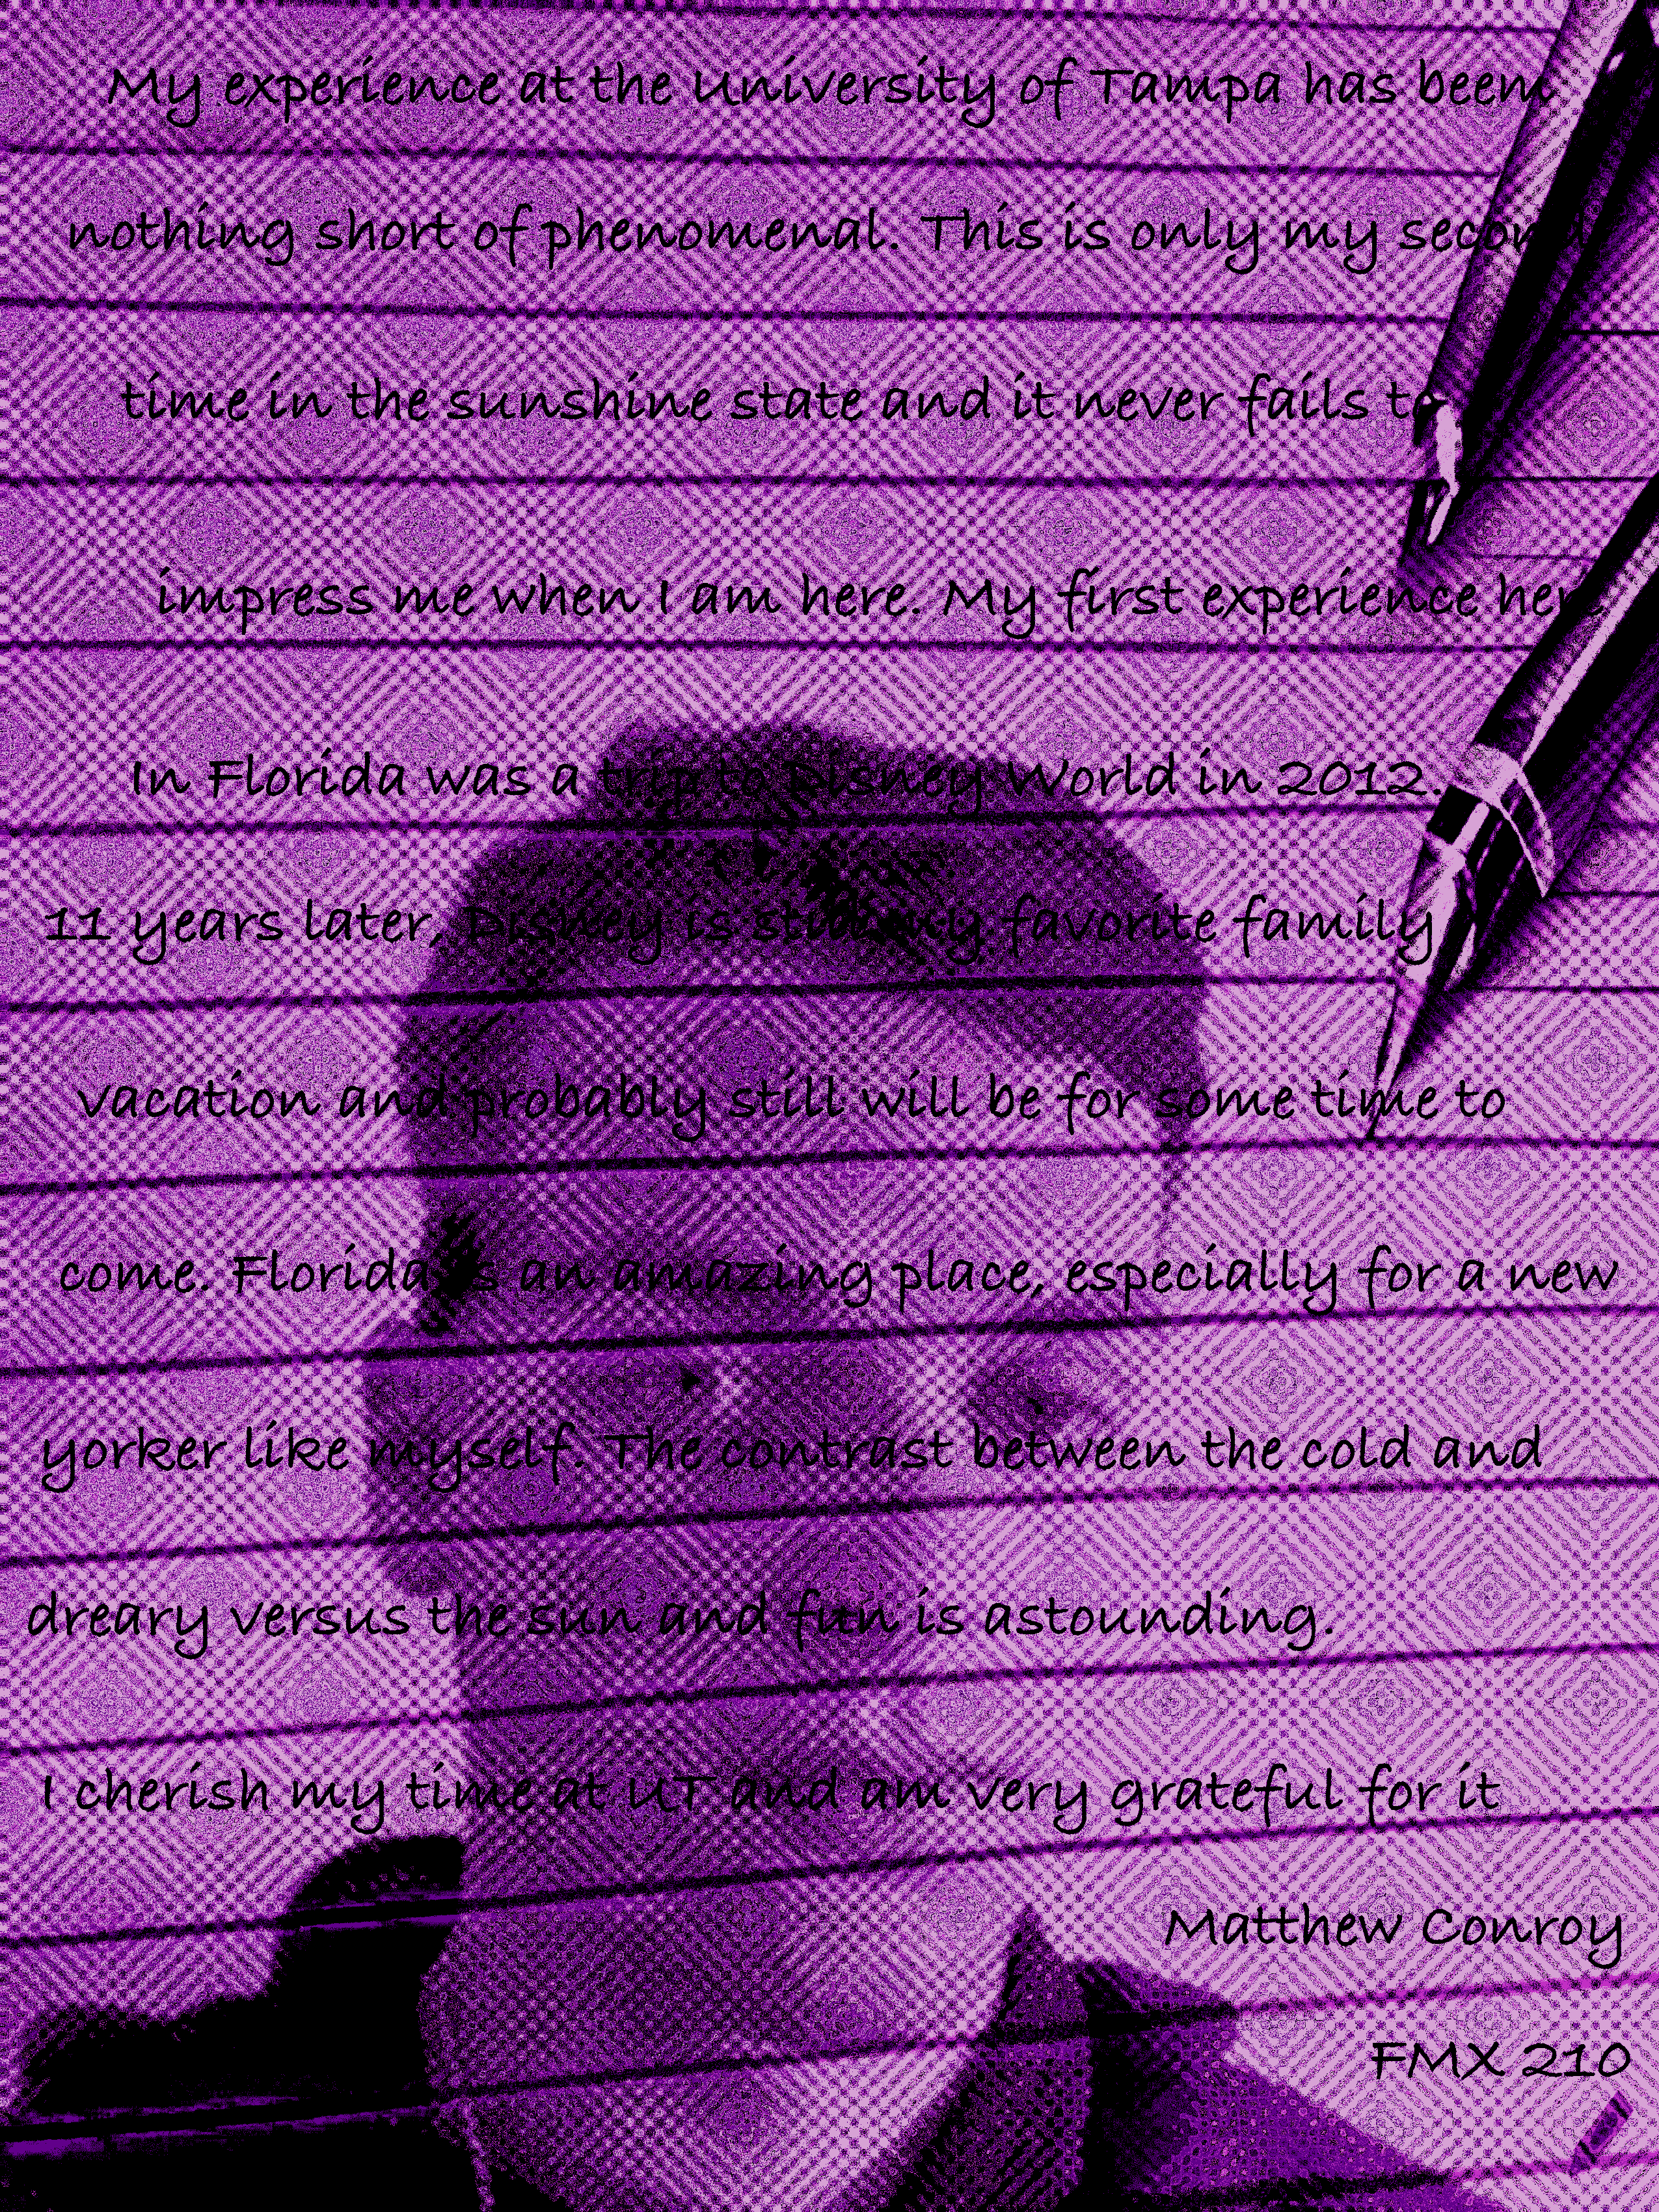 My experience at the University of Tampa has been
nothing short of phenomenal. This is only my second
time in the sunshine state and it never fails to
impress me when I am here. My first experience here
In Florida was a trip to Disney World in 2012.
11 years later, Disney is still my favorite family
vacation and probably still will be for some time to
come. Florida is an amazing place, especially for a new
yorker like myself. The contrast between the cold and
dreary versus the sun and fun is astounding.
I cherish my time at UT and am very grateful for it
Matthew Conroy
FMX 210